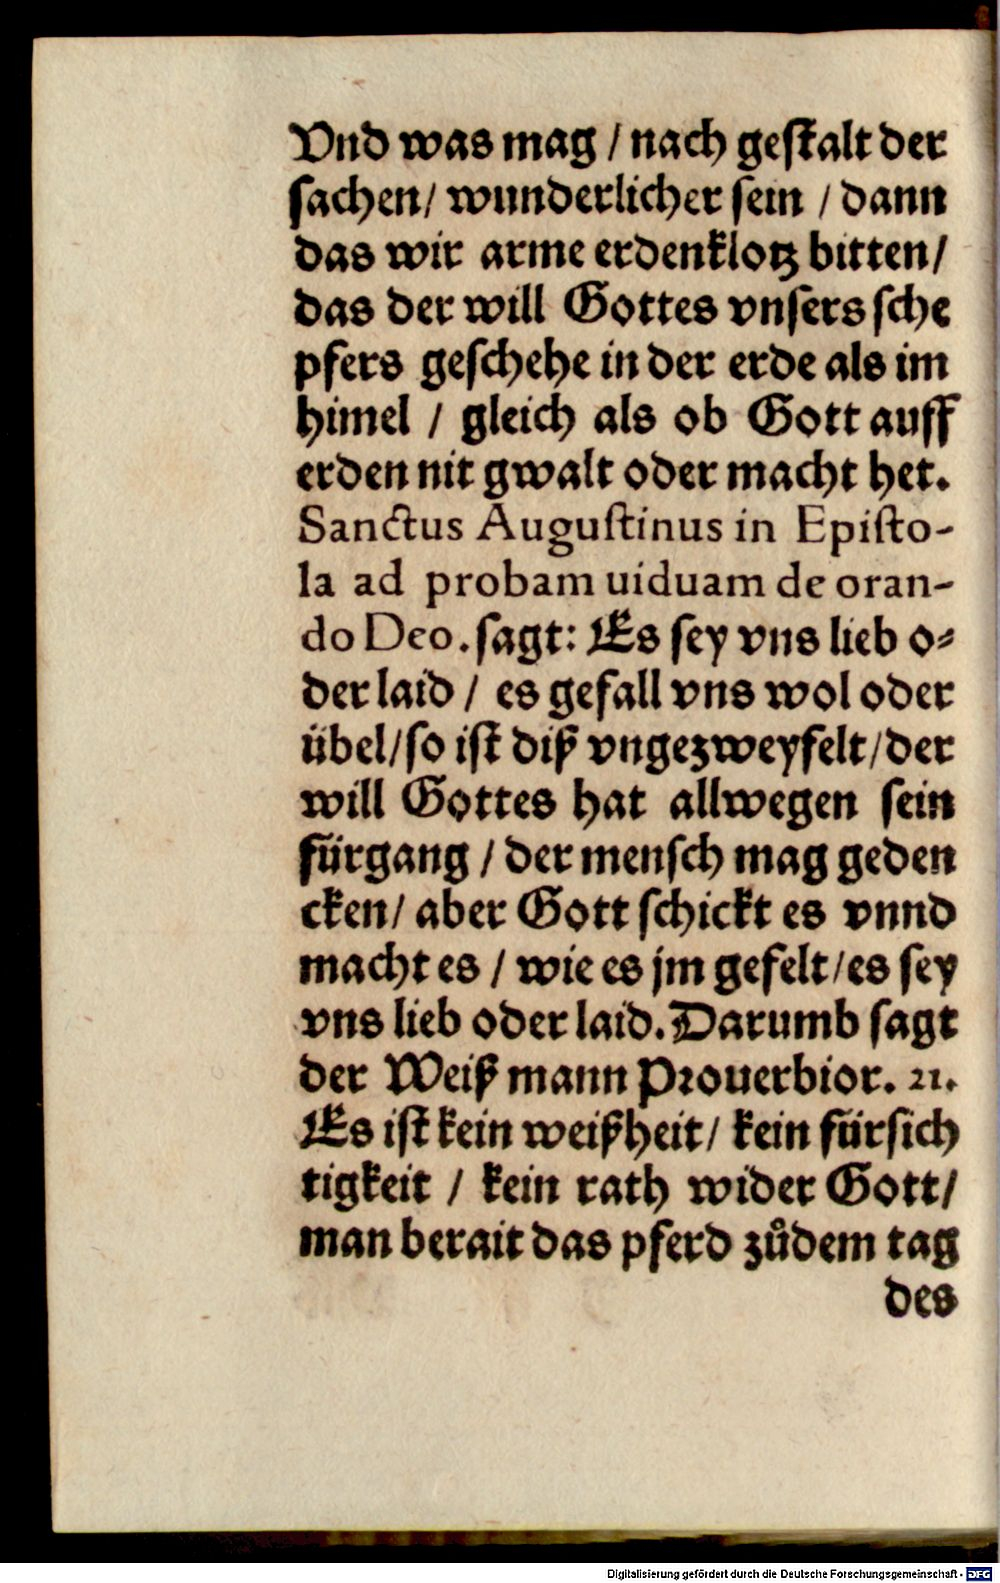 Vnd was mag / nach geſtalt der
ſachen / wunderlicher ſein / dann
das wir arme erdenklotz bitten /
das der will Gottes vnſers ſche
pfers geſchehe in der erde als im
himel / gleich als ob Gott auff
erden nit gwalt oder macht het.
Sanctus Auguſtinus in Epiſto-
la ad probam uiduam de oran-
do Deo. ſagt: Es ſey vns lieb o⸗
der laid / es gefall vns wol oder
übel / ſo iſt diß vngezweyfelt / der
will Gottes hat allwegen ſein
fürgang / der menſch mag geden
cken / aber Gott ſchickt es vnnd
macht es / wie es jm gefelt / es ſey
vns lieb oder laid. Darumb ſagt
der Weiß mann Prouerbior. 21.
Es iſt kein weißheit / kein fürſich
tigkeit / kein rath wider Gott /
man berait das pferd zůdem tag
des
Digitalisierung gefördert durch die Deutsche Forschungsgemeinschaft - DFG